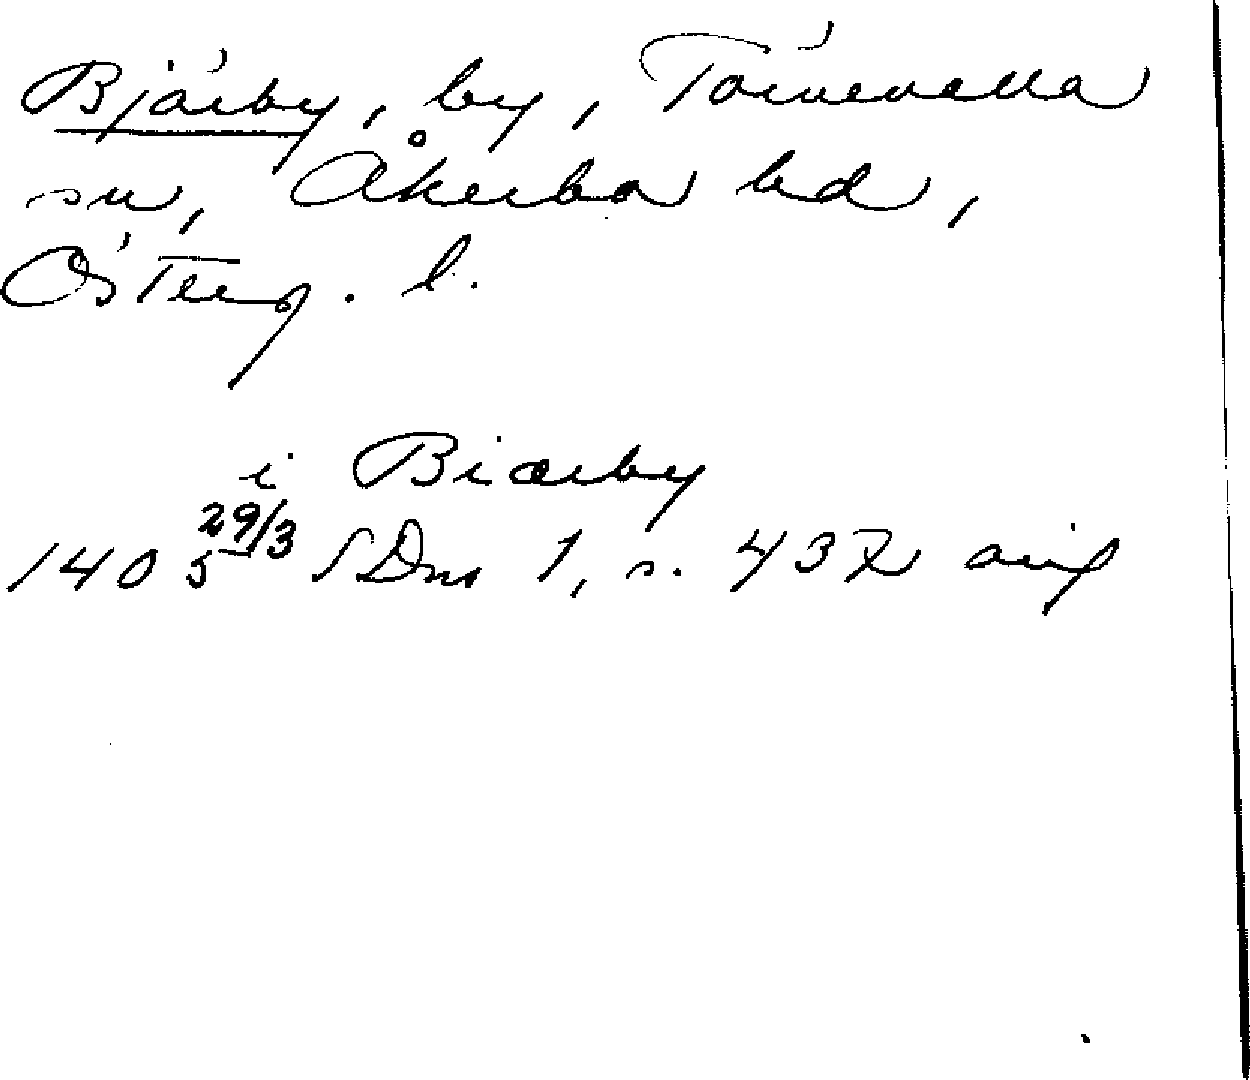 Bjärby, by, Törnevalla
sn, Åkerbo hd,
Österg. l.
i Biærby
1405 29/3 SDns 1, s. 432 avs